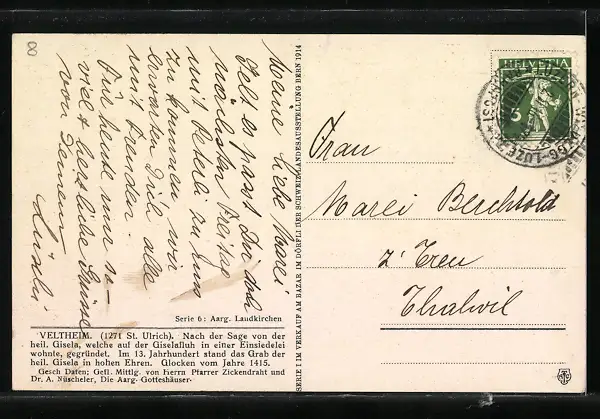 8
Meine liebe Marei
Gelt es passt Dir doch
nächsten Freitag
mit Peterli zu uns
zu kommen, wir
erwarten Dich alle
mit Freuden.
Für heute nur so-
viel & herzliche Grüsse
von Deinem
Serie 6: Aarg. Landkirchen
VELTHEIM. (1271 St. Ulrich). Nach der Sage von der
heil. Gisela, welche auf der Giselafluh in einer Einsiedelei
wohnte, gegründet. Im 13. Jahrhundert stand das Grab der
heil. Gisela in hohen Ehren. Glocken vom Jahre 1415.
Gesch Daten; Gefl. Mittlg. von Herrn Pfarrer Zickendraht und
Dr. A. Nüscheler, Die Aarg. Gotteshäuser.
SERIE I IM VERKAUF AM BAZAR IM DÖRFLI DER SCHWEIZ. LANDESAUSSTELLUNG BERN 1914
HELVETIA
5
Frau
Marei Berchtold
z' Treu
Thalwil